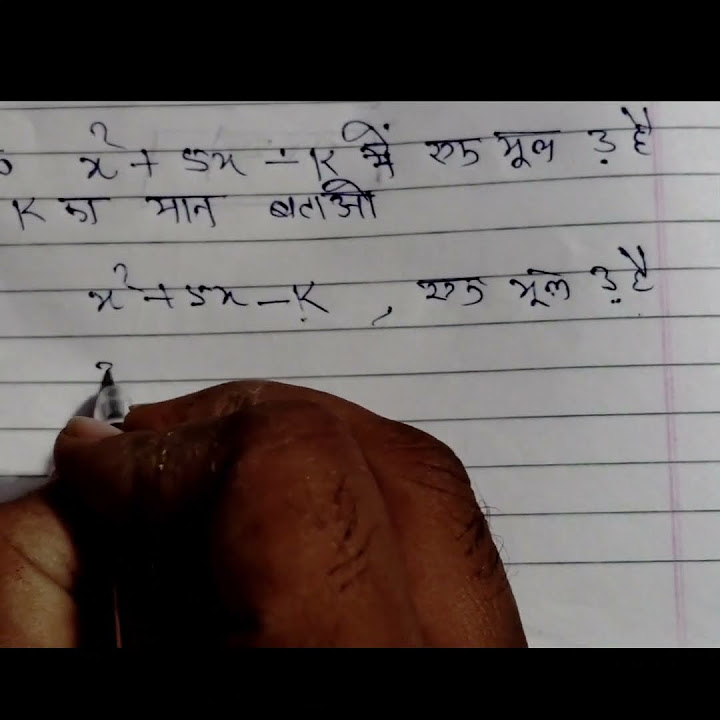 x² + 5x - K में एक मूल 3 है
K का मान बताओ
x² + 5x - K , एक मूल 3 है